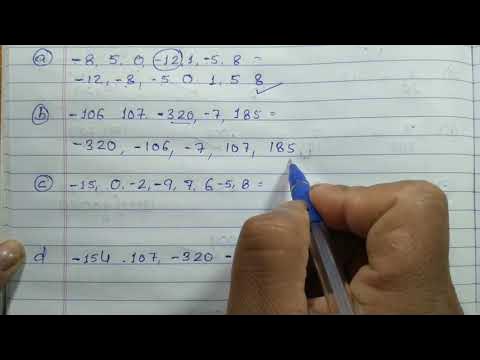 a -8, 5, 0, -12, 1, -5, 8 =
-12, -8, -5 0 1, 5 8
b -106 107 -320, -7, 185 =
-320, -106, -7, 107, 185
c -15, 0, -2, -9, 7, 6 -5, 8 =
d -154 . 107, -320 -